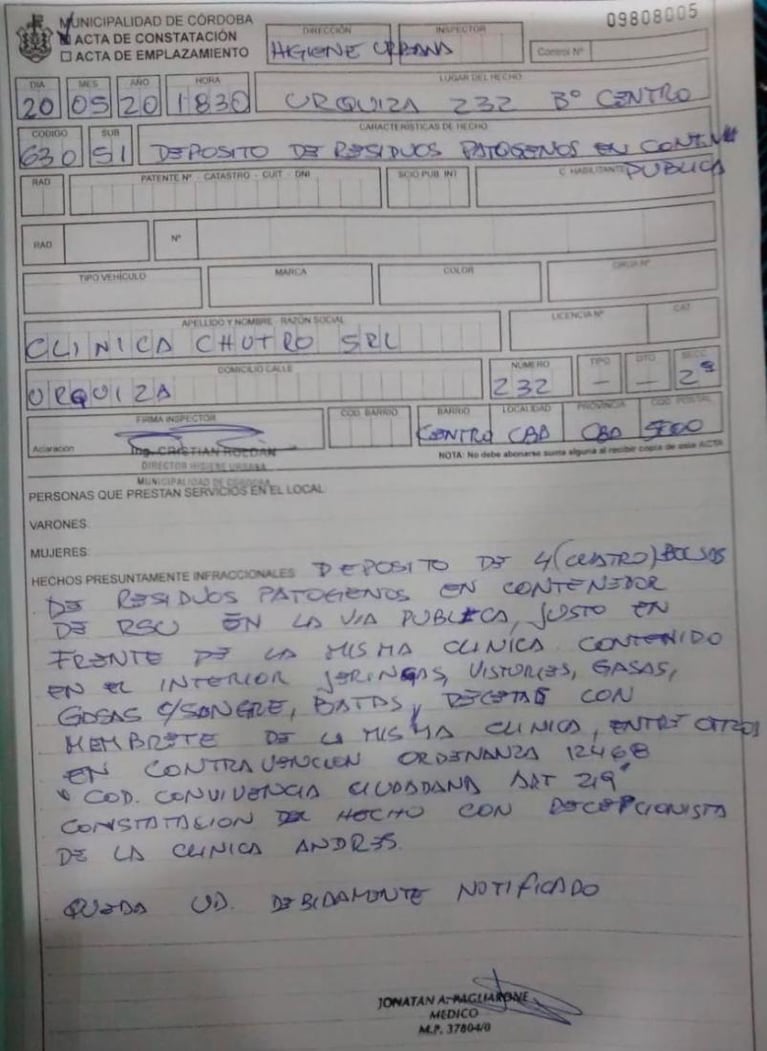 MUNICIPALIDAD DE CÓRDOBA
ACTA DE CONSTATACIÓN
ACTA DE EMPLAZAMIENTO
DIRECCIÓN
HIGIENE URBANA
INSPECTOR
09808005
Control Nº
DIA MES AÑO HORA LUGAR DEL HECHO
20 05 20 1830 URQUIZA 232 Bº CENTRO
CODIGO SUB CARACTERÍSTICAS DE HECHO
630 51 DEPOSITO DE RESIDUOS PATOGENOS EN
PUBLICA
RAD PATENTE Nº - CATASTRO - CUIT - DNI SCIO PUB. INT C. HABILITANTE
RAD Nº
TIPO VEHÍCULO MARCA COLOR
APELLIDO Y NOMBRE - RAZÓN SOCIAL LICENCIA Nº CAT.
CLINICA CHUTRO SRL
DOMICILIO CALLE NÚMERO TIPO DTO SECC
URQUIZA 232 — — 2º
FIRMA INSPECTOR COD. BARRIO BARRIO LOCALIDAD PROVINCIA COD. POSTAL
CENTRO CBA CBA 5000
Aclaración Ing. CRISTIAN ROLDÁN
DIRECTOR HIGIENE URBANA
MUNICIPALIDAD DE CÓRDOBA
NOTA: No debe abonarse suma alguna al recibir copia de este ACTA
PERSONAS QUE PRESTAN SERVICIOS EN EL LOCAL
VARONES:
MUJERES:
HECHOS PRESUNTAMENTE INFRACCIONALES DEPOSITO DE 4 (CUATRO) BOLSAS
DE RESIDUOS PATOGENOS EN CONTENEDOR
DE RSU EN LA VIA PUBLICA, JUSTO EN
FRENTE DE LA MISMA CLINICA CONTENIDO
EN EL INTERIOR JERINGAS, VISTURIES, GASAS,
GASAS C/SANGRE, BATAS, RECETAS CON
MEMBRETE DE LA MISMA CLINICA, ENTRE OTROS
EN CONTRAVENCION ORDENANZA 12468
COD. CONVIVENCIA CIUDADANA ART 219
CONSTATACION DEL HECHO CON RECEPCIONISTA
DE LA CLINICA ANDRES.
QUEDA UD. DEBIDAMENTE NOTIFICADO
JONATAN A. PAGLIARONE
MEDICO
M.P. 37804/0